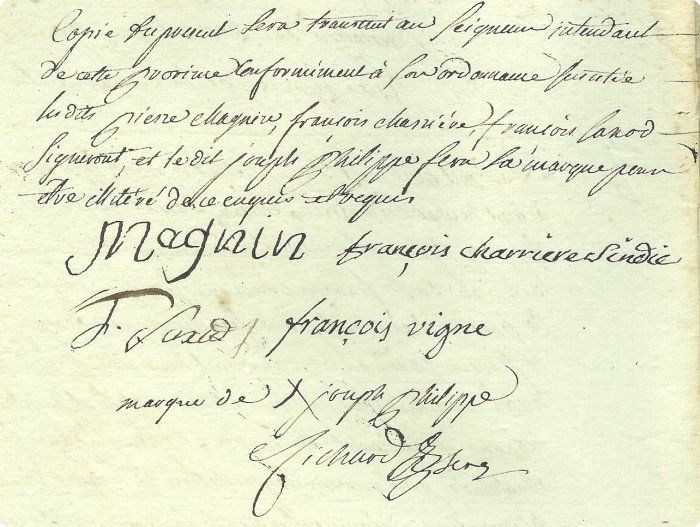 Copie du present sera transmit au Seigneur intendant
de cette province Conformement à son ordonnance susditte
lesdits pierre Magnin, françois charriere, françois
Signeront, et le dit joseph Philippe fera sa marque pour
etre illiteré de ce enquis et requis
Magnin françois charriere sindic
F. françois vigne
marque de X joseph Philippe
Richard